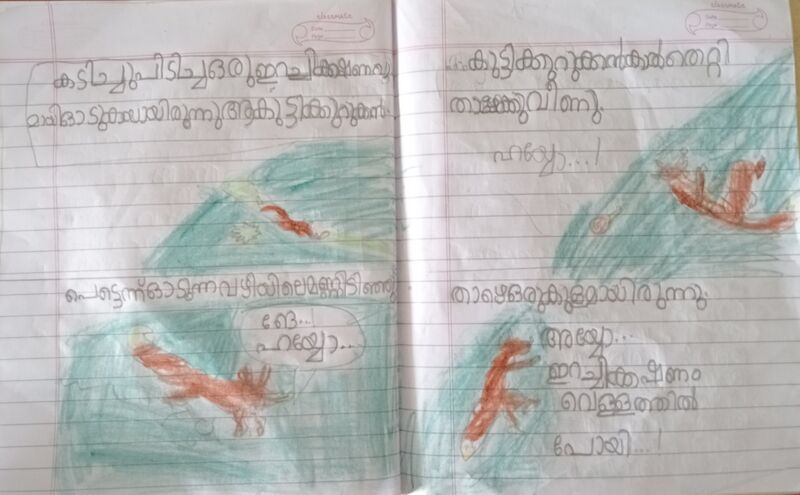 classmate
Date
Page
കടിച്ചുപിടിച്ച ഒരു ഇറച്ചിക്കഷണവു
മായി ഓടുകയായിരുന്നു ആ കുട്ടിക്കുറുക്കൻ.
പെട്ടെന്ന് ഓടുന്ന വഴിയിലെ മണ്ണിടിഞ്ഞു
ങേ...!
ഹയ്യോ...
classmate
Date
Page
കുട്ടിക്കുറുക്കൻ കാൽതെറ്റി
താഴേക്കുവീണു.
ഹയ്യോ...!
താഴെ ഒരു കുളമായിരുന്നു.
അയ്യോ...
ഇറച്ചിക്കഷണം
വെള്ളത്തിൽ
പോയി...!